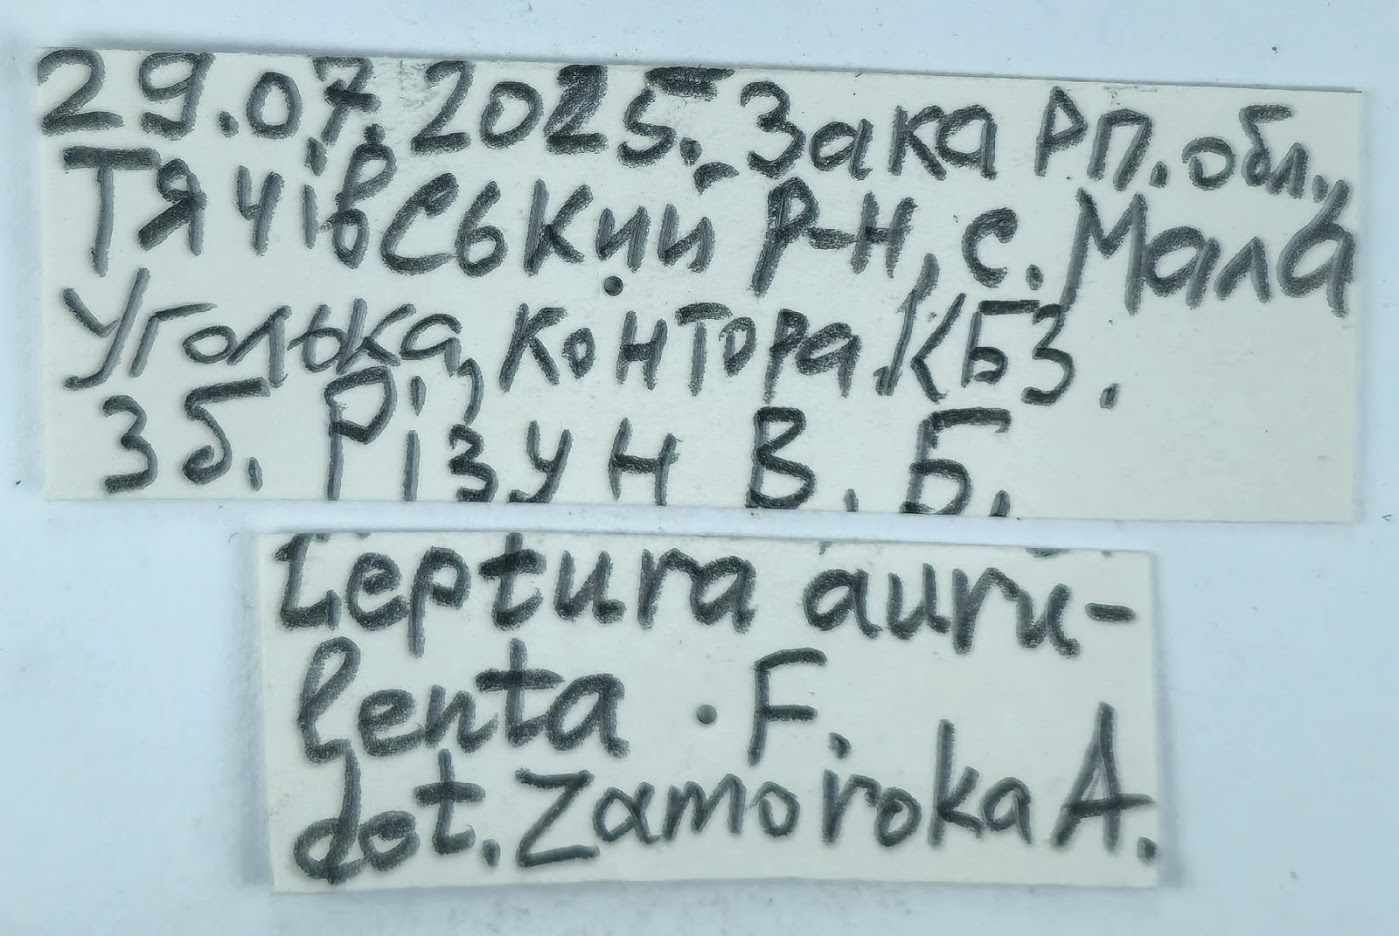 29.07.2025. Закарп. обл.,
Тячівський р-н, с. Мала
Уголька, контора КБЗ.
Зб. Різун В. Б.
Leptura auru-
lenta F.
det. Zamoroka A.